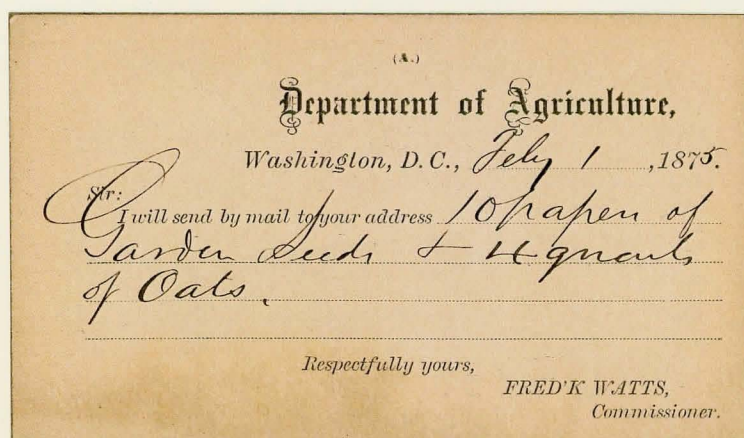 (A.)
Department of Agriculture,
Washington, D. C., Feby 1, 1875.
Sir:
I will send by mail to your address 10 papers of
Garden Seeds + 4 quarts
of Oats.
Respectfully yours,
FRED'K WATTS,
Commissioner.